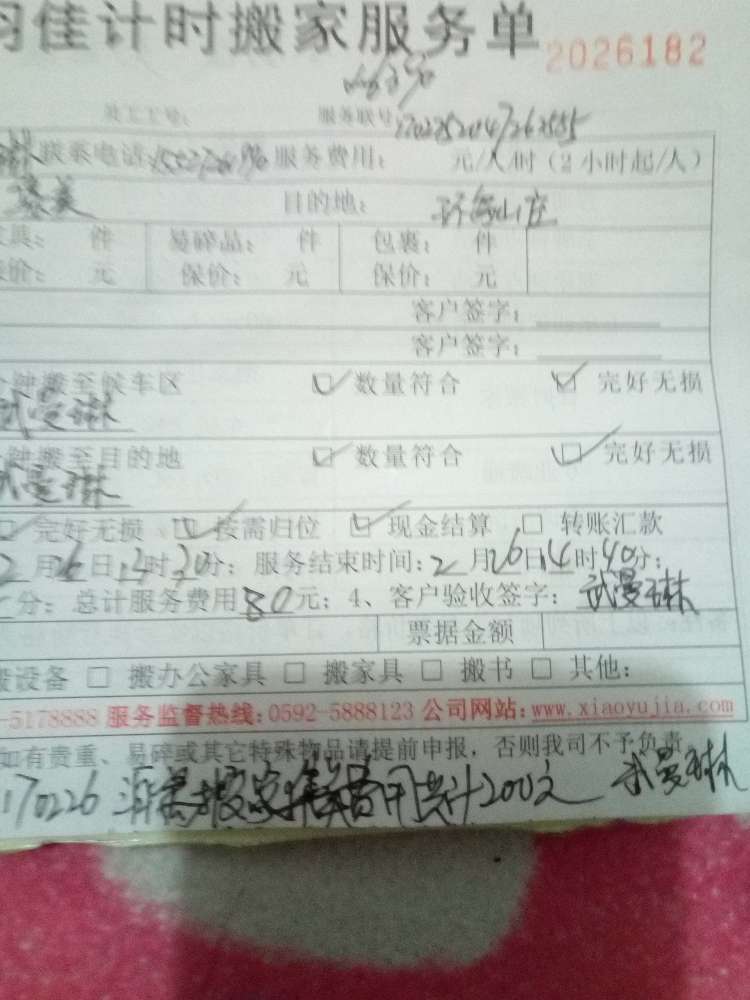 佳计时搬家服务单 2026182
员工工号： 服务联号：
联系电话： 服务费用： 元/人/时（2小时起/人）
目的地： 山庄
具： 件 易碎品： 件 包裹： 件
保价： 元 保价： 元 保价： 元
客户签字：
客户签字：
分钟搬至候车区 □ 数量符合 □ 完好无损
武曼琳
分钟搬至目的地 □ 数量符合 □ 完好无损
武曼琳
□ 完好无损 □ 按需归位 □ 现金结算 □ 转账汇款
2月26日13时30分；服务结束时间：2月26日14时40分；
分；总计服务费用80元；4、客户验收签字：武曼琳
票据金额
搬设备 □ 搬办公家具 □ 搬家具 □ 搬书 □ 其他：
-5178888 服务监督热线：0592-5888123 公司网站：www.xiaoyujia.com
如有贵重、易碎或其它特殊物品请提前申报，否则我司不予负责
170226 搬家 费用共计200元 武曼琳